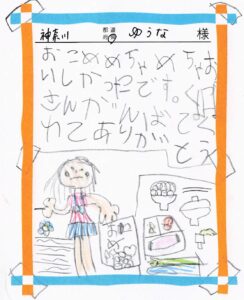 神奈川 都道府県 ゆうな 様
おこめめちゃめちゃお
いしかったです。くぼ
さんがんばってく
れてありがとう